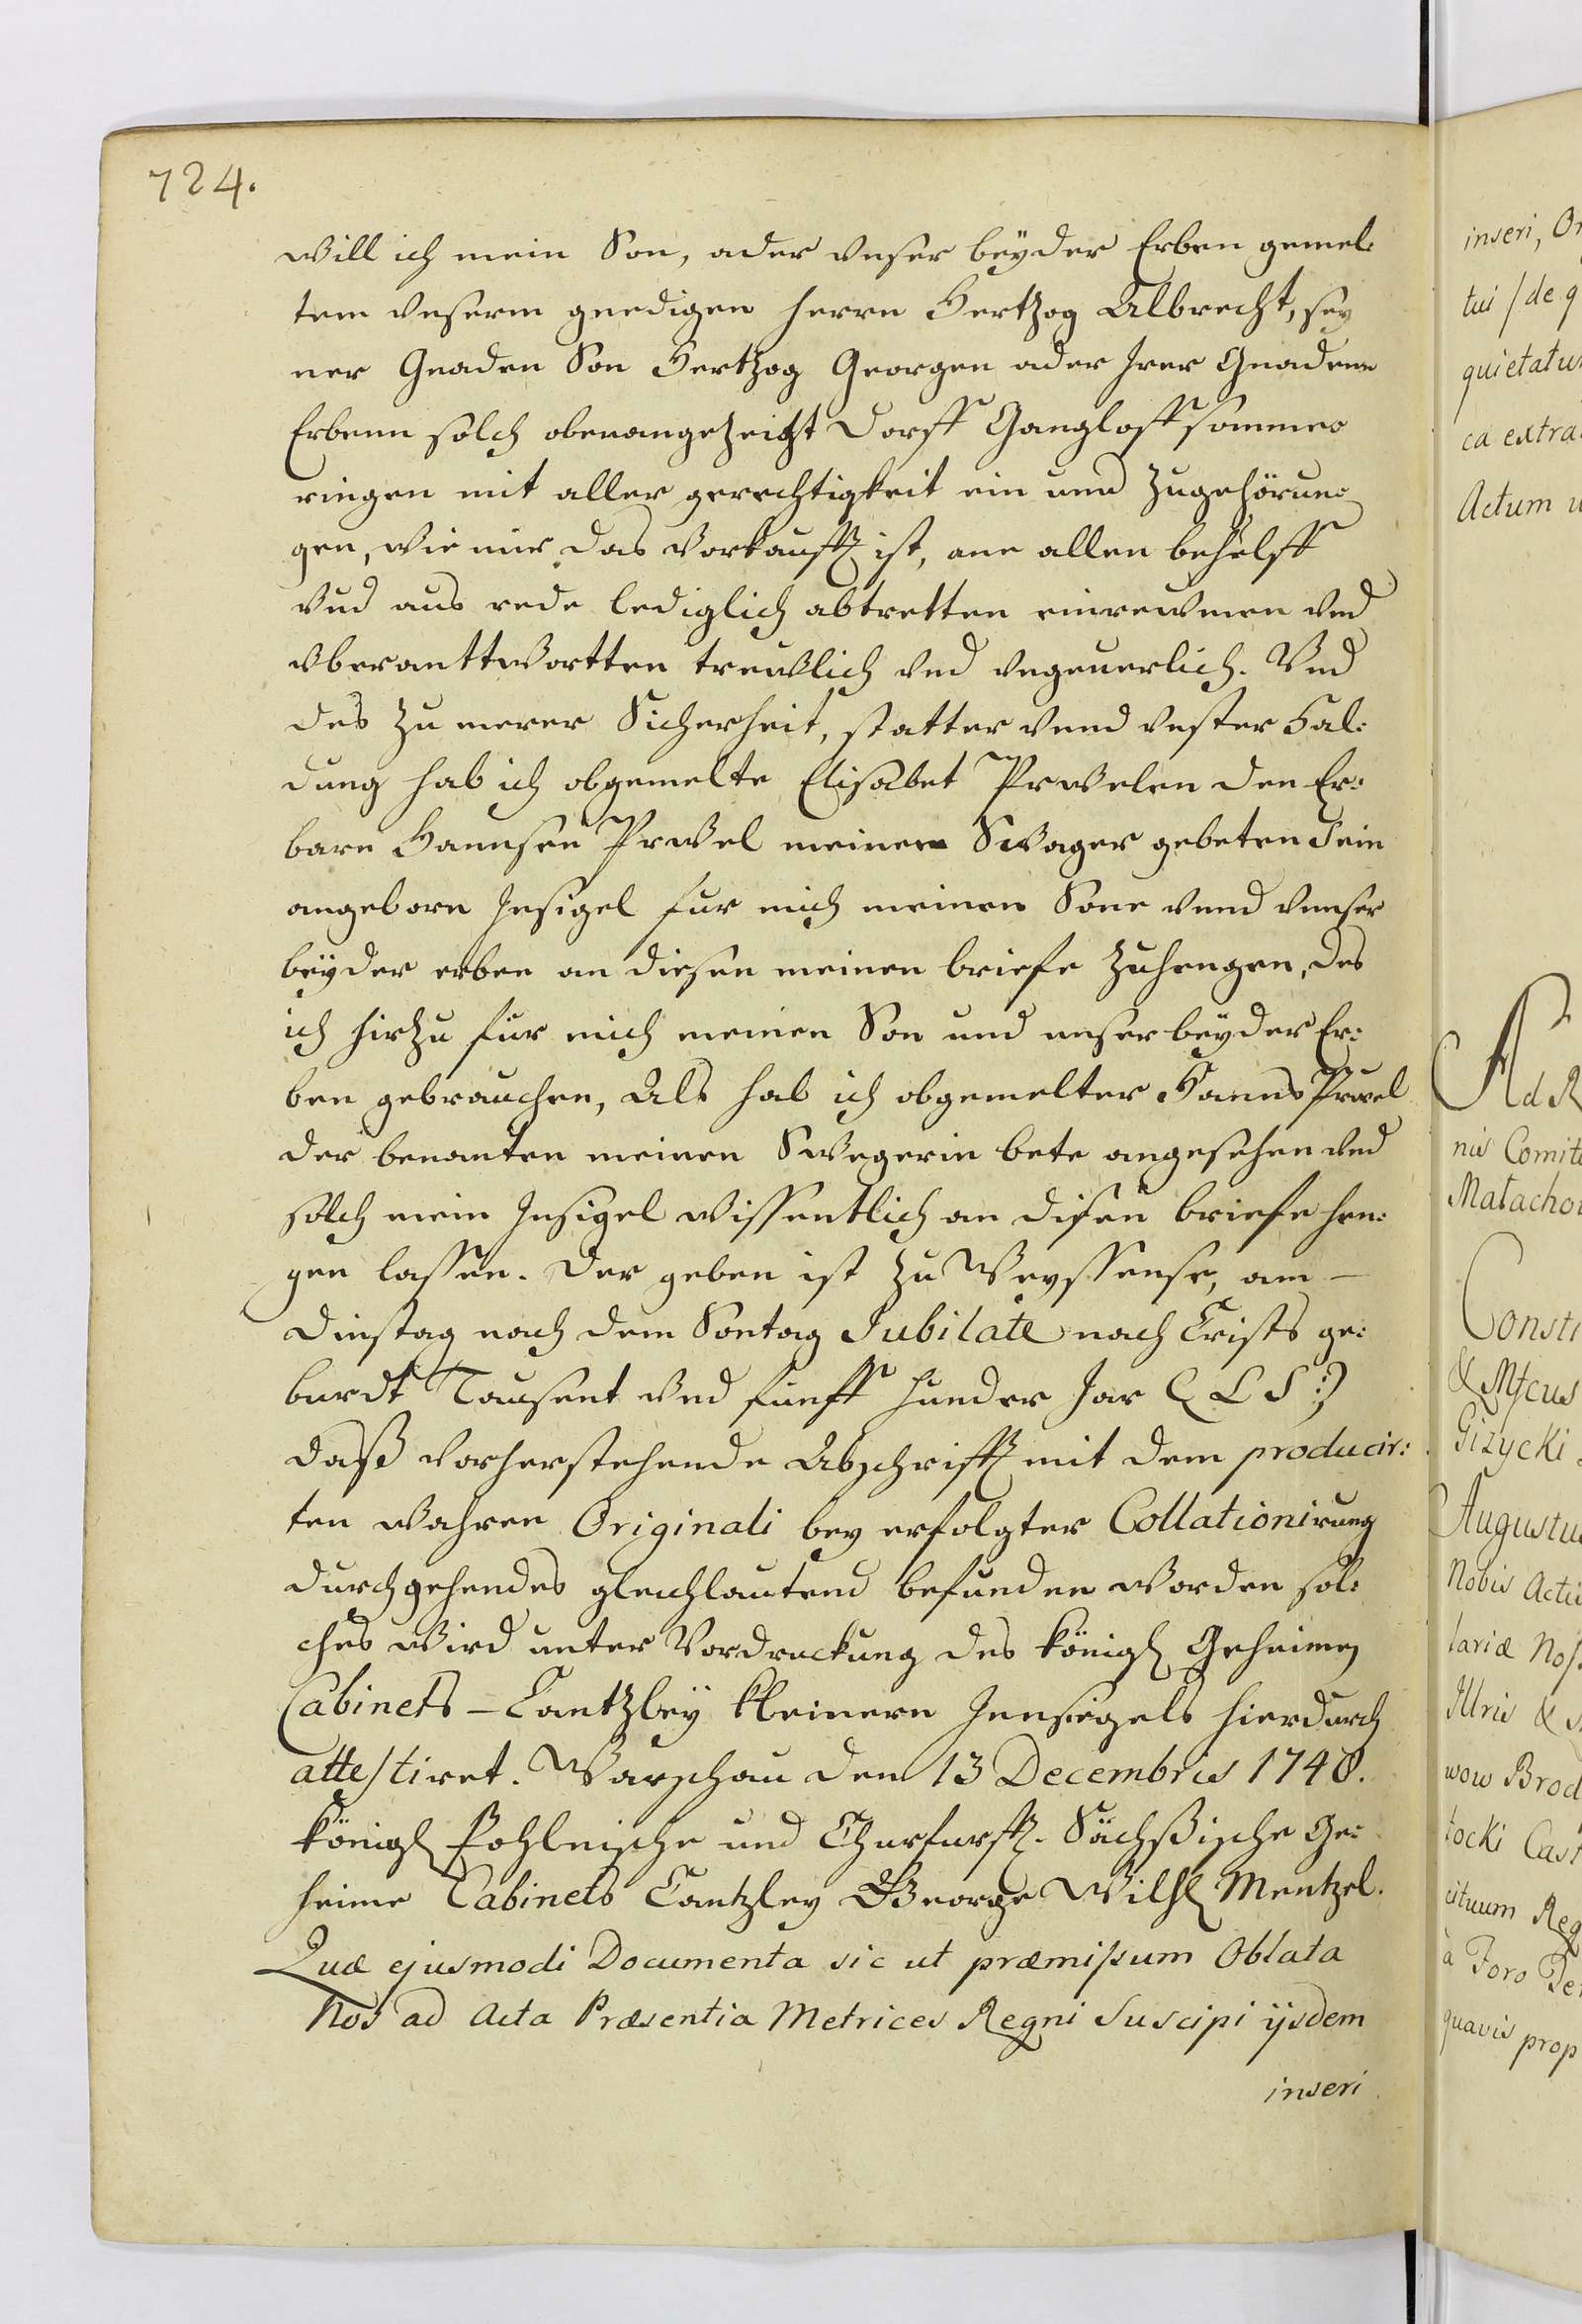 724.
will ich mein Son, ader vnser beyder Erben gemel:
tem vnserm gnedigen herrn Hertzog Albrecht, sey
ner Gnaden Son Hertzog Georgen ader Jrer Gnadenn
Erbenn solch obenangezeigt Dorff Gangloffsömme:
ringen mit aller gerechtigkeit ein unnd Zugehörun:
gen, wie mir das Vorkaufft ist, ane allen behelff
Vnd aus rede lediglich abtretten einrewmen vnd
vberanttwortten trewlich vnd vngeuerlich. Vnd
des zu merer Sicherheit, statter vnnd vester Hal:
dung hab ich obgemelte Elisabet Prwelen den Er:
barn Hannsen Prwel meinen Swager gebeten Sein
angeborn Jnsigel fur mich meinen Sone vnnd vnnser
beyder erben an diesen meinen briefe zuhengen, des
ich hirzu für mich meinen Son und unser beyder Er:
ben gebrauchen, Als hab ich obgemelter Hanns Prwel
der benanten meinen Swegerin bete angesehen vnd
solch mein Jnsigel wissentlich an disen briefe hen:
gen lassen. Der geben ist zu Weyssense, am —
Dinstag nach dem Sontag Jubilate nach Crists ge:
burdt Tausent vnd funff hunder Jar (: L S :)
daß vorherstehende Abschrifft mit dem producir:
ten wahren Originali bey erfolgter Collationirung
durchgehendes gleichlautend befunden worden sol:
ches wird unter Vordruckung des königl Geheimen
Cabinets – Cantzley kleinern Jnnsiegels hierdurch
attestiret. Warschau den 13 Decembris 1748.
königl Pohlnische und Churfurstl. Sächßische Ge:
heime Cabinets Cantzley George Wilhl Mentzel.
Quæ ejusmodi Documenta sic ut præmissum Oblata
Nos ad Acta Præsentia Metrices Regni Suscipi ijsdem
inseri
inseri,
tui /de
ca extra
Actum
Ad
nis
Matacho
Consti
Giżycki
Augustu
Nobis
lariæ
Illris &
wow
tocki
à Foro
quavis prop